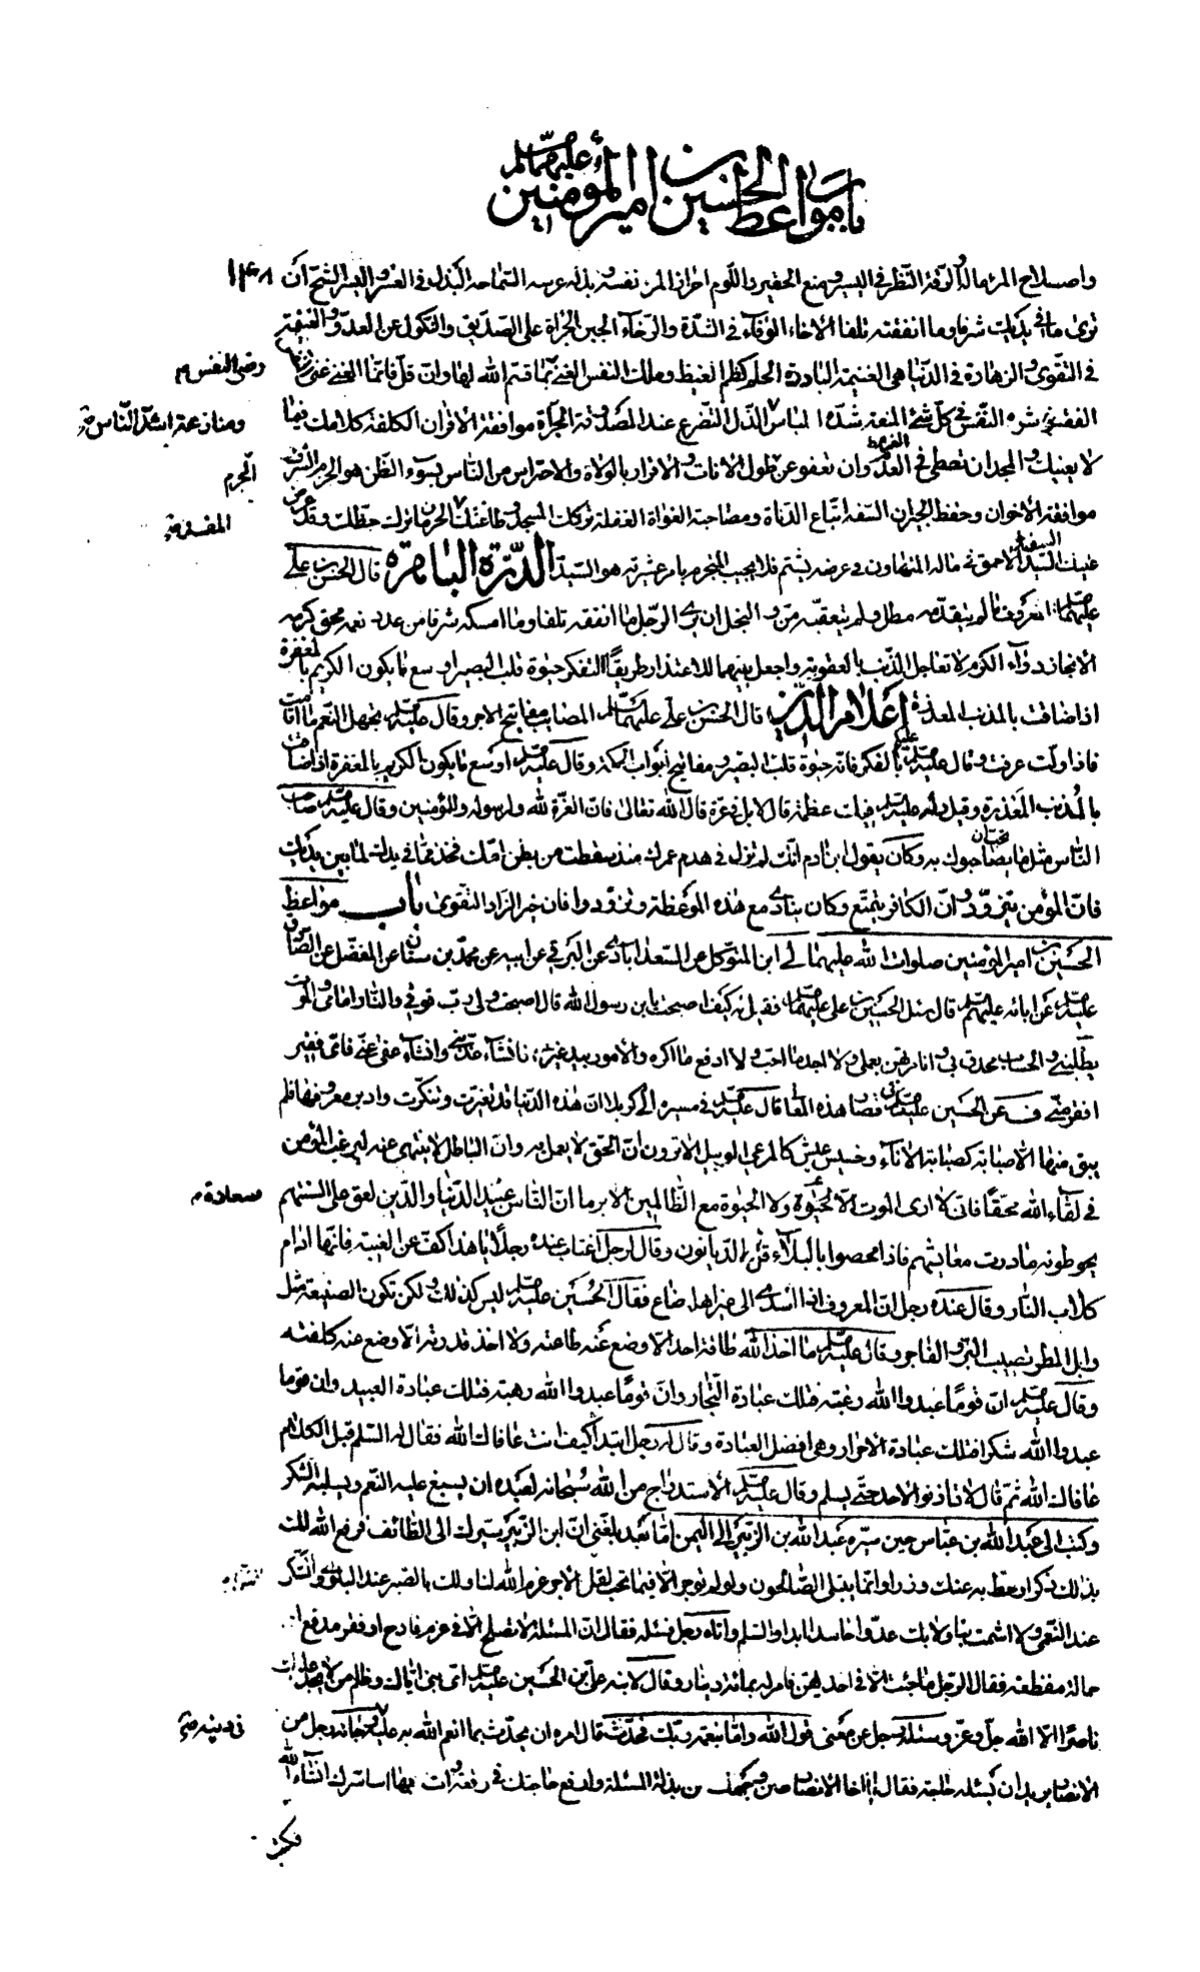 باب مواعظ الحسين بن أمير المؤمنين عليهما السلم
۱۴۸
واصلاح المرء ماله الرقة النظر في اليسير ومنع الحقير واللؤم احراز المرء نفسه وبذله عرسه السماحة البذل في العسر واليسر الشح أن
ترى ما في يديك شرفا وما انفقته تلفا الاخاء الوفآء في الشدة والرخآء الجبن الجرأة على الصديق والنكول عن العدو والغنيمة
في التقوى والزهادة في الدنيا هي الغنيمة الباردة الحلم كظم الغيظ وملك النفس الغنى بما قسم الله لها وان قل فانما الغنى غنى
وضى النفس
الفقر شره النفس في كل شئ المنعة شدة الباس الذل التضرع عند المصدوقة الجرأة موافقة الاقران الكلفة كلامك فيما
ومنازعة اشد الناس
لا يعنيك والمجد ان تعطى في العدم وان تعفو عن طول الانات والاقرار بالولاة والاحتراس من الناس بسوء الظن هو الحزم السرف
الغرم
الجرم
موافقة الاخوان وحفظ الجيران السفه اتباع الدناة ومصاحبة الغواة الغفلة تركك المسجد وطاعتك الحرمان تركك حظك وقد عرض
المفسد
عليك السيد الاحمق في ماله المتهاون في عرضه يشتم فلا يجيب المتحرم بامر عشيرته هو السيد الدرة الباهرة قال الحسن بن علي
السفيه
عليهما السلم المعروف ما لم يتقدمه مطل ولم يتعقبه من والبخل ان يرى الرجل ما انفقه تلفا وما امسكه شرفا من عدد نعمه محق كرمه
الانجاز دوآء الكرم لا تعاجل الذنب بالعقوبة واجعل بينهما للاعتذار طريقا التفكر حيوة قلب البصير اوسع ما يكون الكريم بالمغفرة
اذا ضاقت بالمذنب المعذرة اعلام الدين قال الحسن بن علي عليهما السلم المصايب مفاتيح الاجر وقال عليه السلم تجهل النعم ما اقامت
فاذا ولت عرفت وقال عليه السلم عليكم بالفكر فانه حيوة قلب البصير ومفاتيح أبواب الحكمة وقال عليه السلم اوسع ما يكون الكريم بالمغفرة اذا ضاقت
بالمذنب المعذرة وقيل له عليه السلم فيك عظمة قال لا بل في عزة قال الله تعالى فان العزة لله ولرسوله وللمؤمنين وقال عليه السلم صاحب
الناس مثل ما تحب ان يصاحبوك به وكان يقول ابن ادم انك لم تزل في هدم عمرك منذ سقطت من بطن امك فخذ مما في يديك لما بين يديك
فان المؤمن يتزود وان الكافر يتمتع وكان ينادى مع هذه الموعظة وتزودوا فان خير الزاد التقوى باب مواعظ
الحسين بن امير المؤمنين صلوات الله عليهما لى ابن المتوكل عن السعدابادي عن البرقي عن ابيه عن محمد بن سنان عن المفضل عن الصادق
عليه السلم عن ابائه عليهم السلم قال سئل الحسين بن علي عليهما السلم فقيل له كيف اصبحت يا بن رسول الله قال اصبحت ولى رب فوقى والنار امامى والموت
يطلبنى والحساب محدق بى وانا مرتهن بعملى ولا اجد ما احب ولا ادفع ما اكره والامور بيد غيرى فان شآء عذبنى وان شآء عفى عنى فاى فقير
افقر منى ف عن الحسين عليه السلم فى قصار هذه المعانى قال عليه السلم في مسيره الى كربلا ان هذه الدنيا قد تغيرت وتنكرت وادبر معروفها فلم
يبق منها الا صبابة كصبابة الانآء وخسيس عيش كالمرعى الوبيل الا ترون ان الحق لا يعمل به وان الباطل لا ينتهى عنه ليرغب المؤمن
في لقآء الله محقا فانى لا ارى الموت الا الحيوة ولا الحيوة مع الظالمين الا برما ان الناس عبيد الدنيا والدين لعق على السنتهم
سعادة
يحوطونه ما درت معايشهم فاذا محصوا بالبلآء قل الديانون وقال لرجل اغتاب عنده رجلا يا هذا كف عن الغيبة فانها ادام
كلاب النار وقال عنده رجل ان المعروف اذا اسدى الى غير اهله ضاع فقال الحسين عليه السلم ليس كذلك ولكن تكون الصنيعة مثل
وابل المطر تصيب البر والفاجر وقال عليه السلم ما اخذ الله طاقة احد الا وضع عنه طاعته ولا اخذ قدرته الا وضع عنه كلفته
وقال عليه السلم ان قوما عبدوا الله رغبة فتلك عبادة التجار وان قوما عبدوا الله رهبة فتلك عبادة العبيد وان قوما
عبدوا الله شكرا فتلك عبادة الاحرار وهى افضل العبادة وقال له رجل ابتدا كيف انت عافاك الله فقال له السلم قبل الكلام
عافاك الله ثم قال لا تاذنوا لاحد حتى يسلم وقال عليه السلم الاستدراج من الله سبحانه لعبده ان يسبغ عليه النعم ويسلبه الشكر
وكتب الى عبد الله بن عباس حين سيره عبد الله بن الزبير الى اليمن اما بعد بلغنى ان ابن الزبير سيرك الى الطائف فرفع الله لك
بذلك ذكرا وحط به عنك وزرا وانما يبتلى الصالحون ولو لم توجر الا فيما تحب لقل الاجر عزم الله لنا ولك بالصبر عند البلوى والشكر
عند النعمى ولا اشمت بنا ولا بك عدوا حاسدا ابدا والسلم واتاه رجل فسئله فقال ان المسئلة لا تصلح الا في غرم فادح او فقر مدقع او
حمالة مفظعة فقال الرجل ما جئت الا في احديهن فامر له بمائة دينار وقال لابنه علي بن الحسين عليه السلم اى بنى اياك وظلم من لا يجد عليك
ناصرا الا الله جل وعز وسئله رجل عن معنى قول الله واما بنعمة ربك فحدث قال امره ان يحدث بما انعم الله به عليه وجاءه رجل من
في دينه
الانصار يريد ان يسئله حاجة فقال يا اخا الانصار صن وجهك من بذلة المسئلة وارفع حاجتك في رقعة وات بها سارك انشاء الله
فكتب